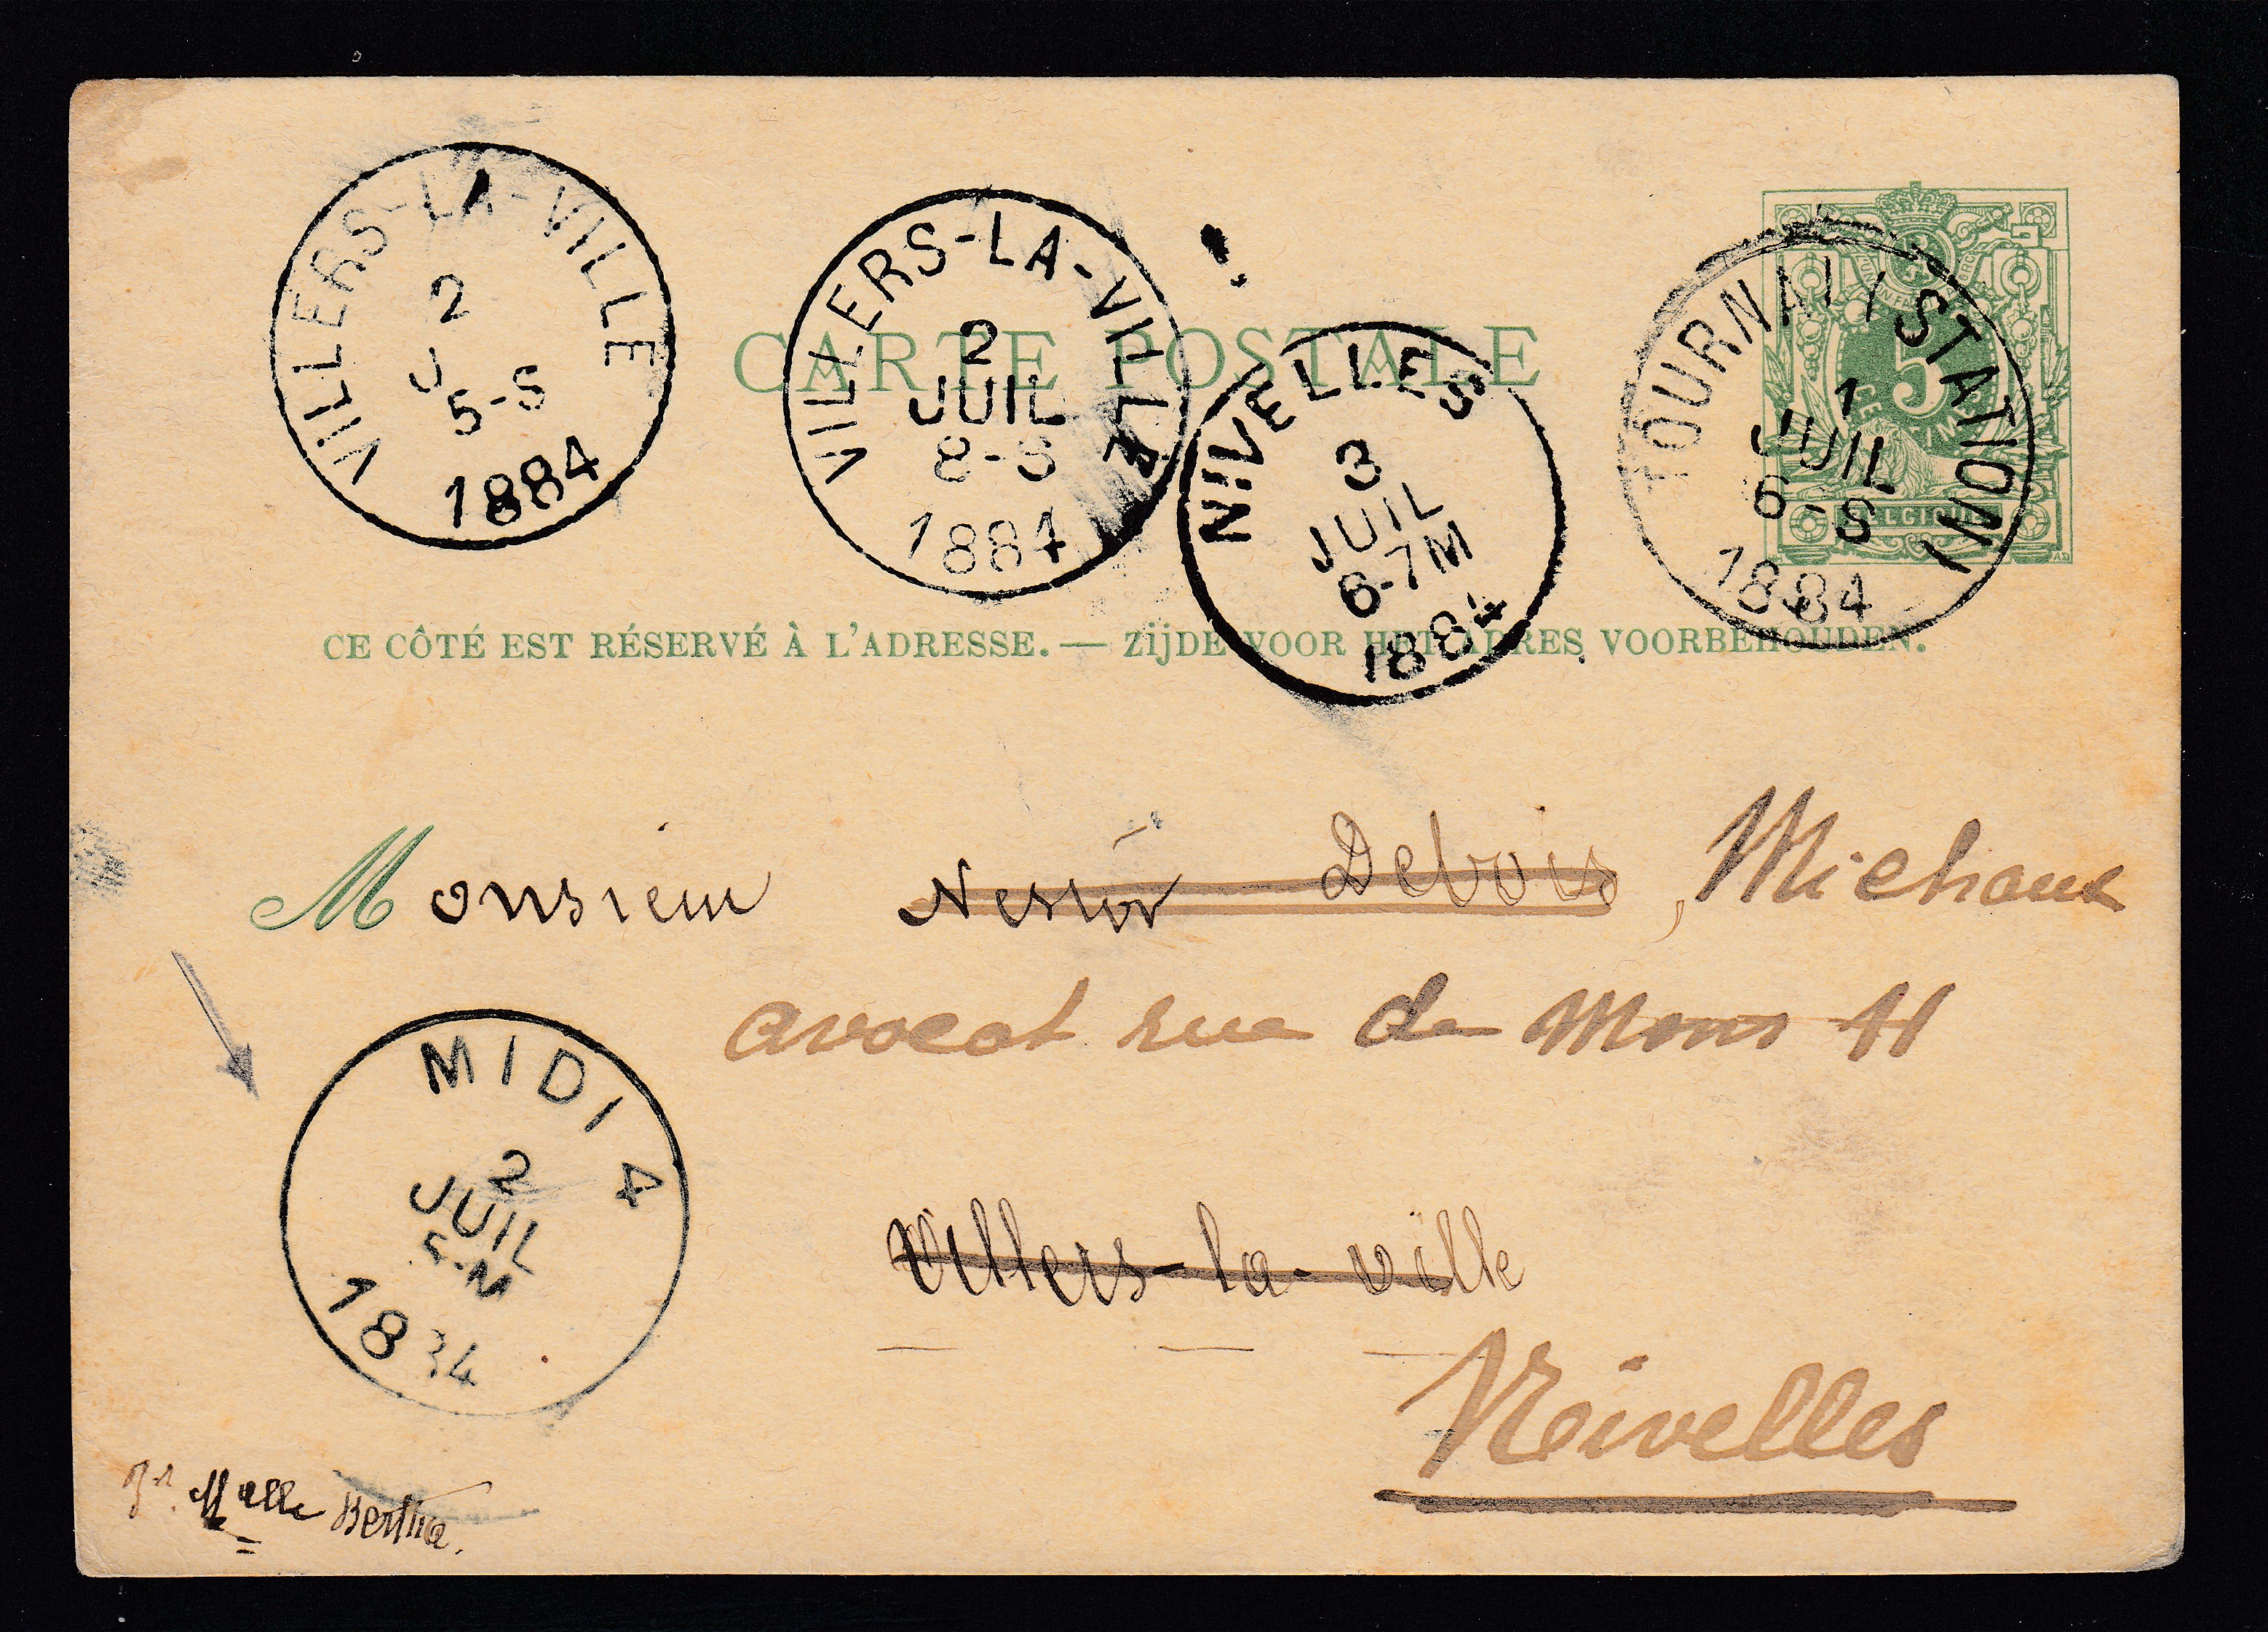 VILLERS-LA-VILLE
2
J
5-S
1884
VILLERS-LA-VILLE
2
JUIL
8-S
1884
NIVELLES
3
JUIL
6-7M
1884
TOURNAI (STATION)
1
JUIL
6-S
1884
5
CENTIMES
BELGIQUE
CARTE POSTALE
CE CÔTÉ EST RÉSERVÉ À L'ADRESSE. — ZIJDE VOOR HET ADRES VOORBEHOUDEN.
Monsieur Nestor Debois, Michaux
avocat rue de Mons 11
MIDI 4
2
JUIL
5-M
1884
Villers-la-ville
Neivelles
Malle Bertha.